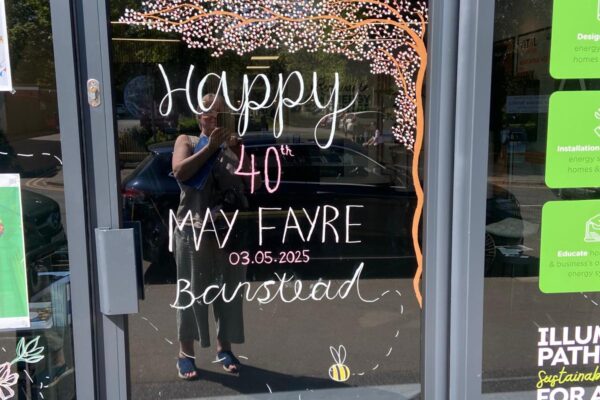 Happy
40th
MAY FAYRE
03.05.2025
Banstead
Design
energy
homes
Installation
energy s
homes &
Educate ho
& business's o
energy sy
ILLUM
PATH
Sustainab
FOR A